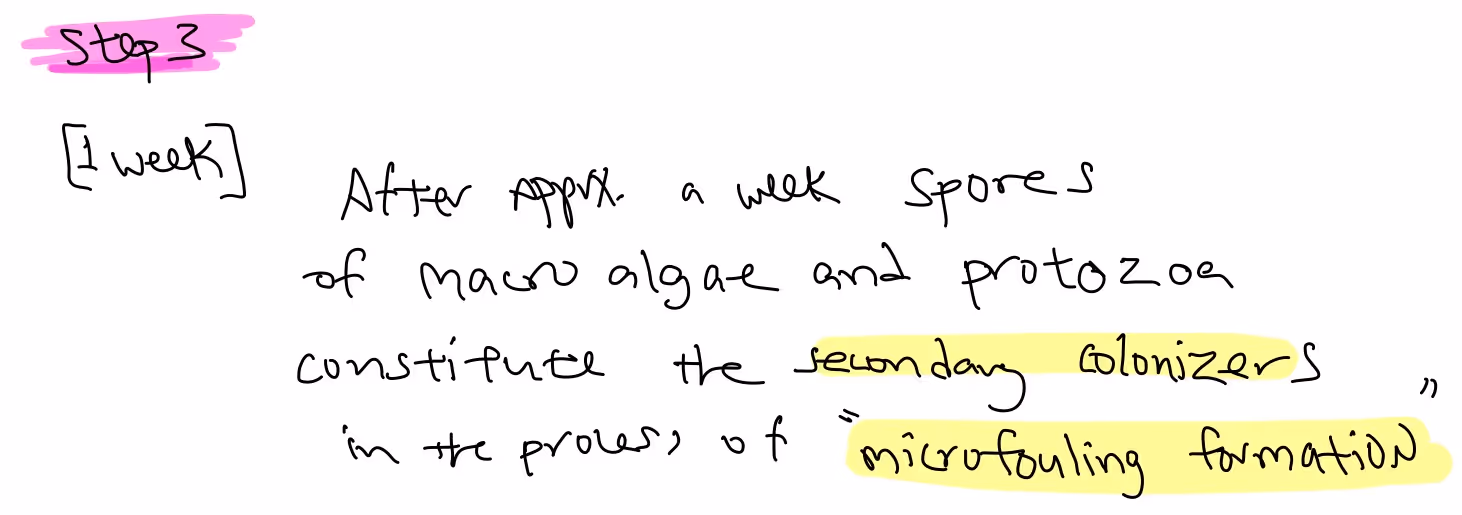 Step 3
[1 week]
After Apprx. a week spores
of macro algae and protozoa
constitute the secondary colonizers
in the process of "microfouling formation"